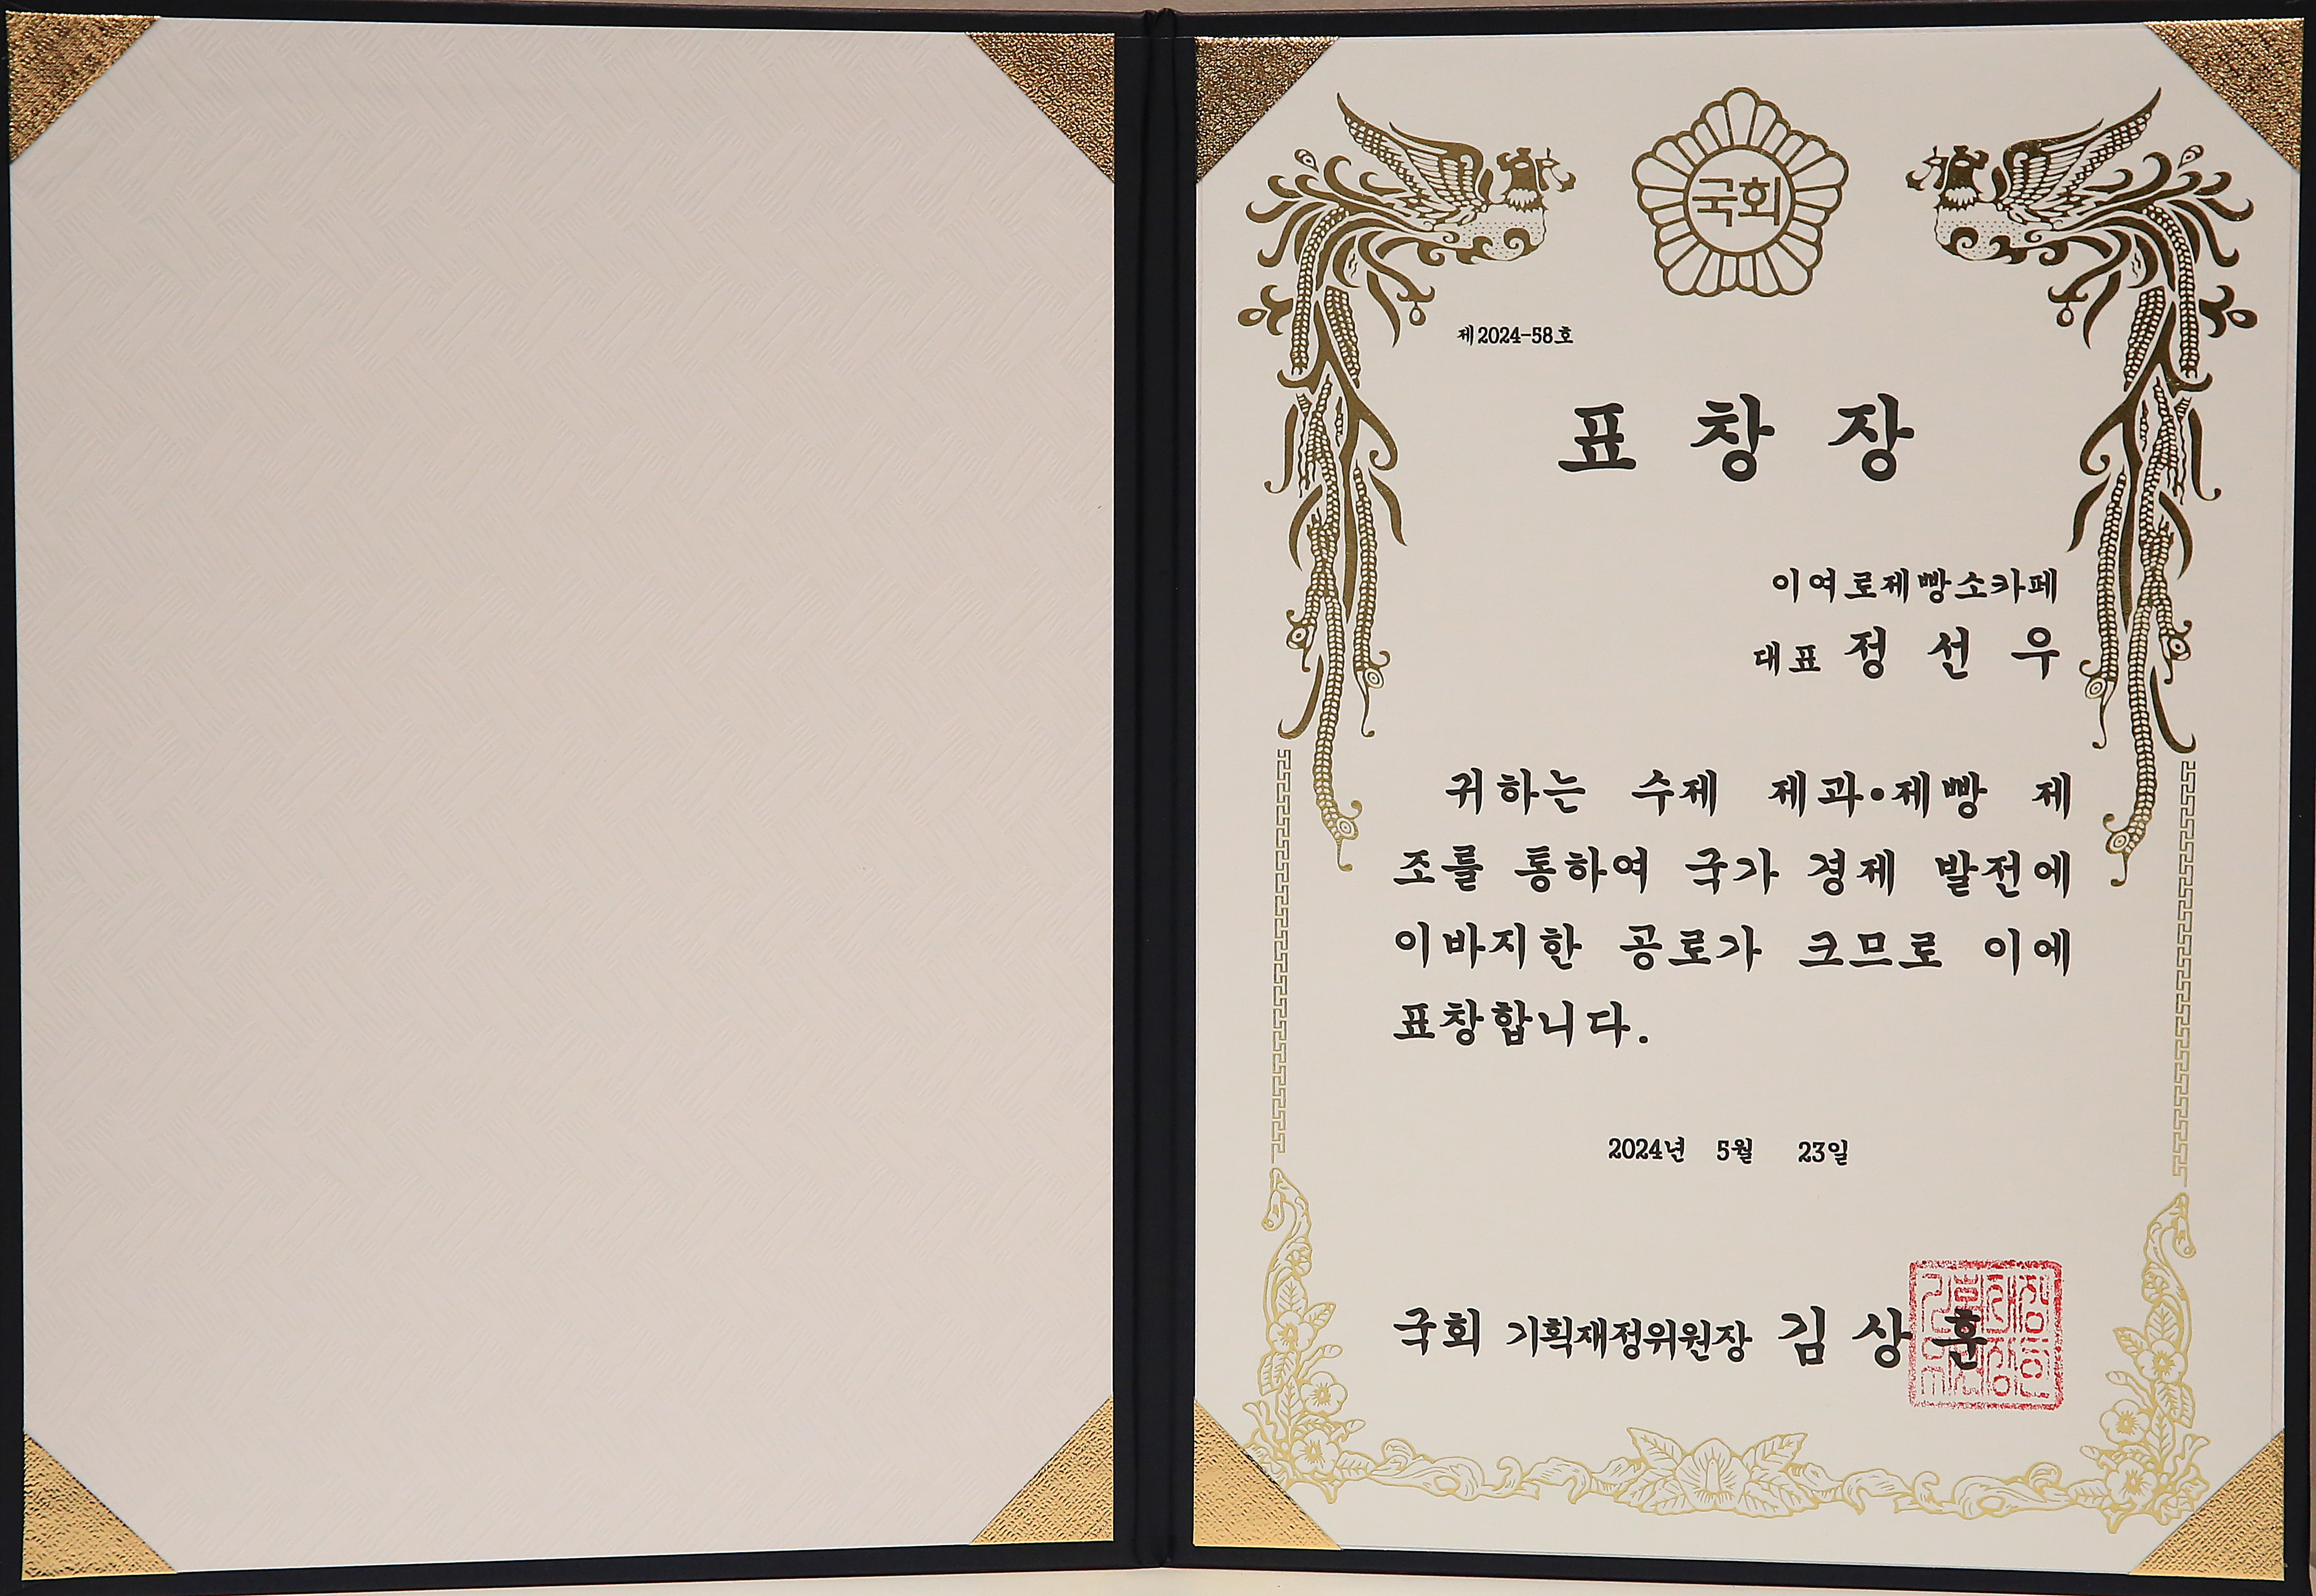 국회
제2024-58호
표 창 장
이여로제빵소카페
대표 정 선 우
귀하는 수제 제과·제빵 제
조를 통하여 국가 경제 발전에
이바지한 공로가 크므로 이에
표창합니다.
2024년 5월 23일
국회 기획재정위원장 김 상 훈